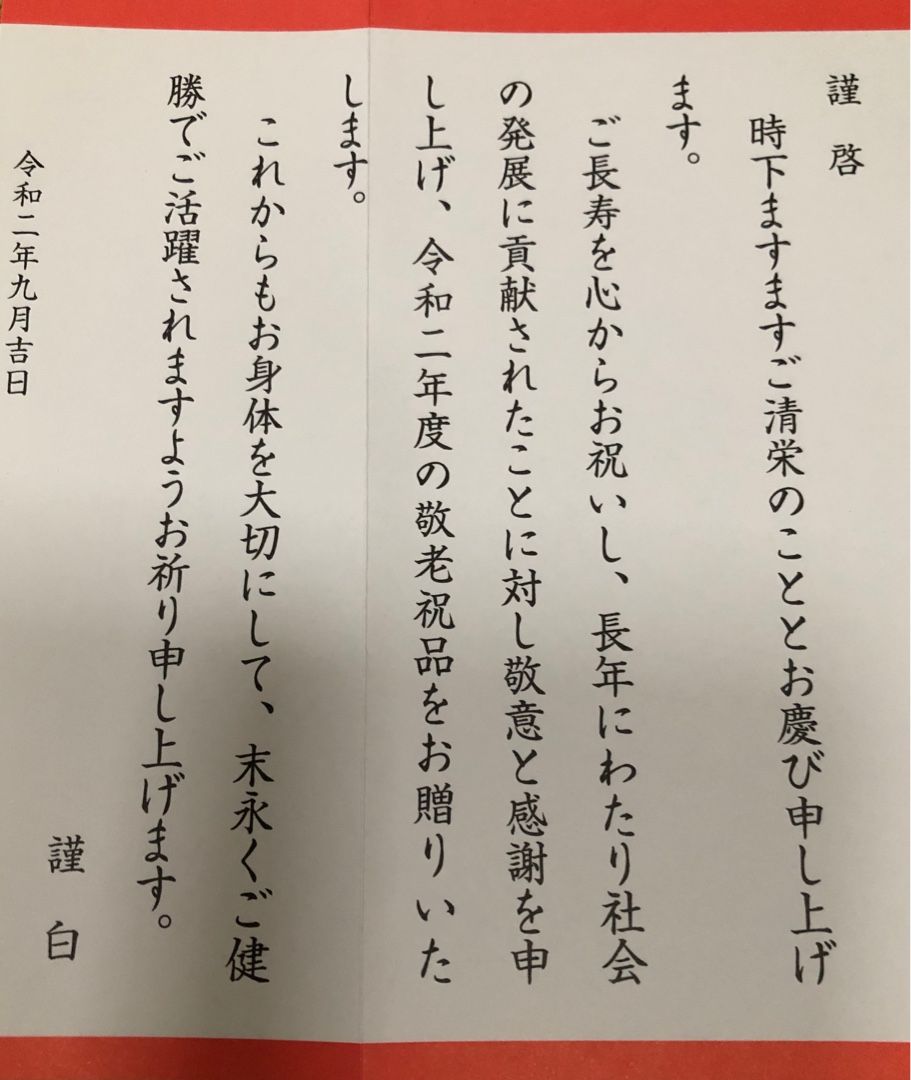 謹啓
時下ますますご清栄のこととお慶び申し上げ
ます。
ご長寿を心からお祝いし、長年にわたり社会
の発展に貢献されたことに対し敬意と感謝を申
し上げ、令和二年度の敬老祝品をお贈りいた
します。
これからもお身体を大切にして、末永くご健
勝でご活躍されますようお祈り申し上げます。
謹白
令和二年九月吉日